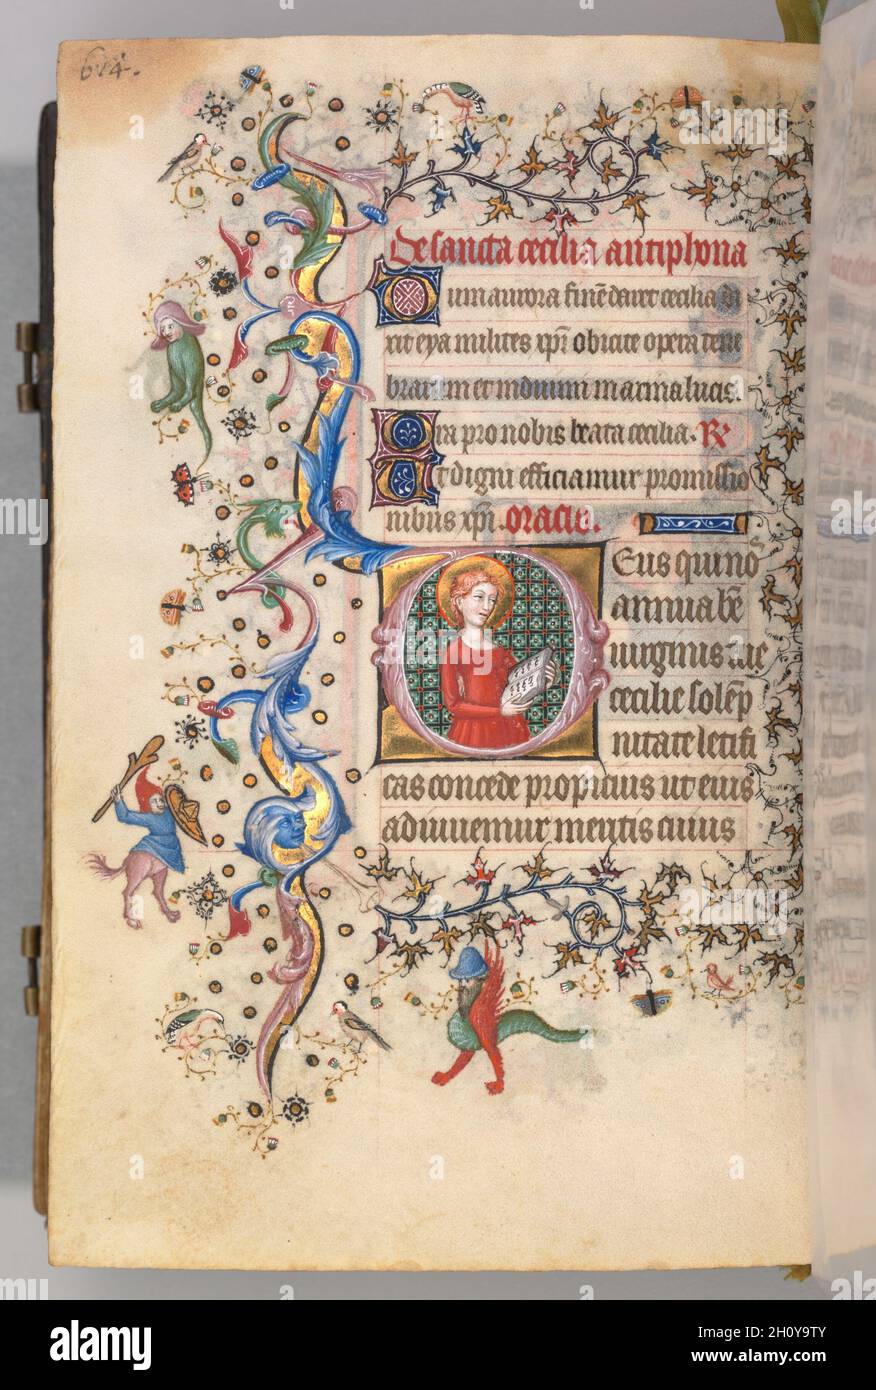 614.
De sancta cecilia antiphona
Dum aurora finē daret cecilia di
xit eya milites xp̄i obicite opera tene
brarum et induimini arma lucis.
Ora pro nobis beata cecilia. R̷
Ut digni efficiamur promissio
nibus xp̄i. Oracio.
Deus qui nos
annua bē
virginis tue
cecilie solēp
nitate letifi
cas concede propicius ut eius
adiuuemur meritis cuius
alamy
Image ID: 2H0Y9TY
www.alamy.com